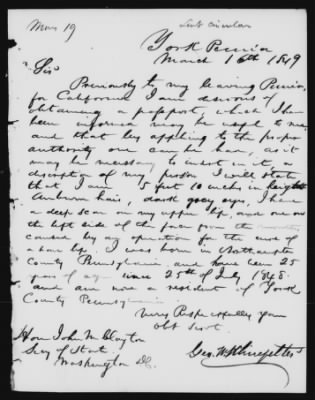 Mar 19
Sent circular
York Penna
March 16th 1849
Sir
Previously to my leaving Penna,
for California I am desirous of
obtaining a passport which I have
been informed may be useful to me
and that by applying to the proper
authority one can be had, as it
may be necessary to insert in it, a
discription of my person I will state
that I am 5 feet 10 inches in heighth
Auburn hair, dark grey eyes, I have
a deep scar on my upper lip, and one on
the left side of the face from the
caused by an operation for the cure of
a hare lip. I was born in
County Pennsylvania, and have been 25
years of age since 25th of July 1848.
and am now a resident of York
County Pennsylvania
Very Respectfully your
Obt Servt.
Hon John M. Clayton
Secy of State
Washington DC.
Geo. W.